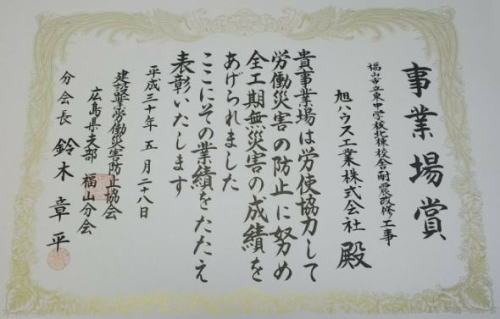 事業場賞
福山市立東中学校北棟校舎耐震改修工事
旭ハウス工業株式会社 殿
貴事業場は労使協力して
労働災害の防止に努め
全工期無災害の成績を
あげられました
ここにその業績をたたえ
表彰いたします
平成三十年 五月二十八日
建設業労働災害防止協会
広島県支部 福山分会
分会長 鈴木章平